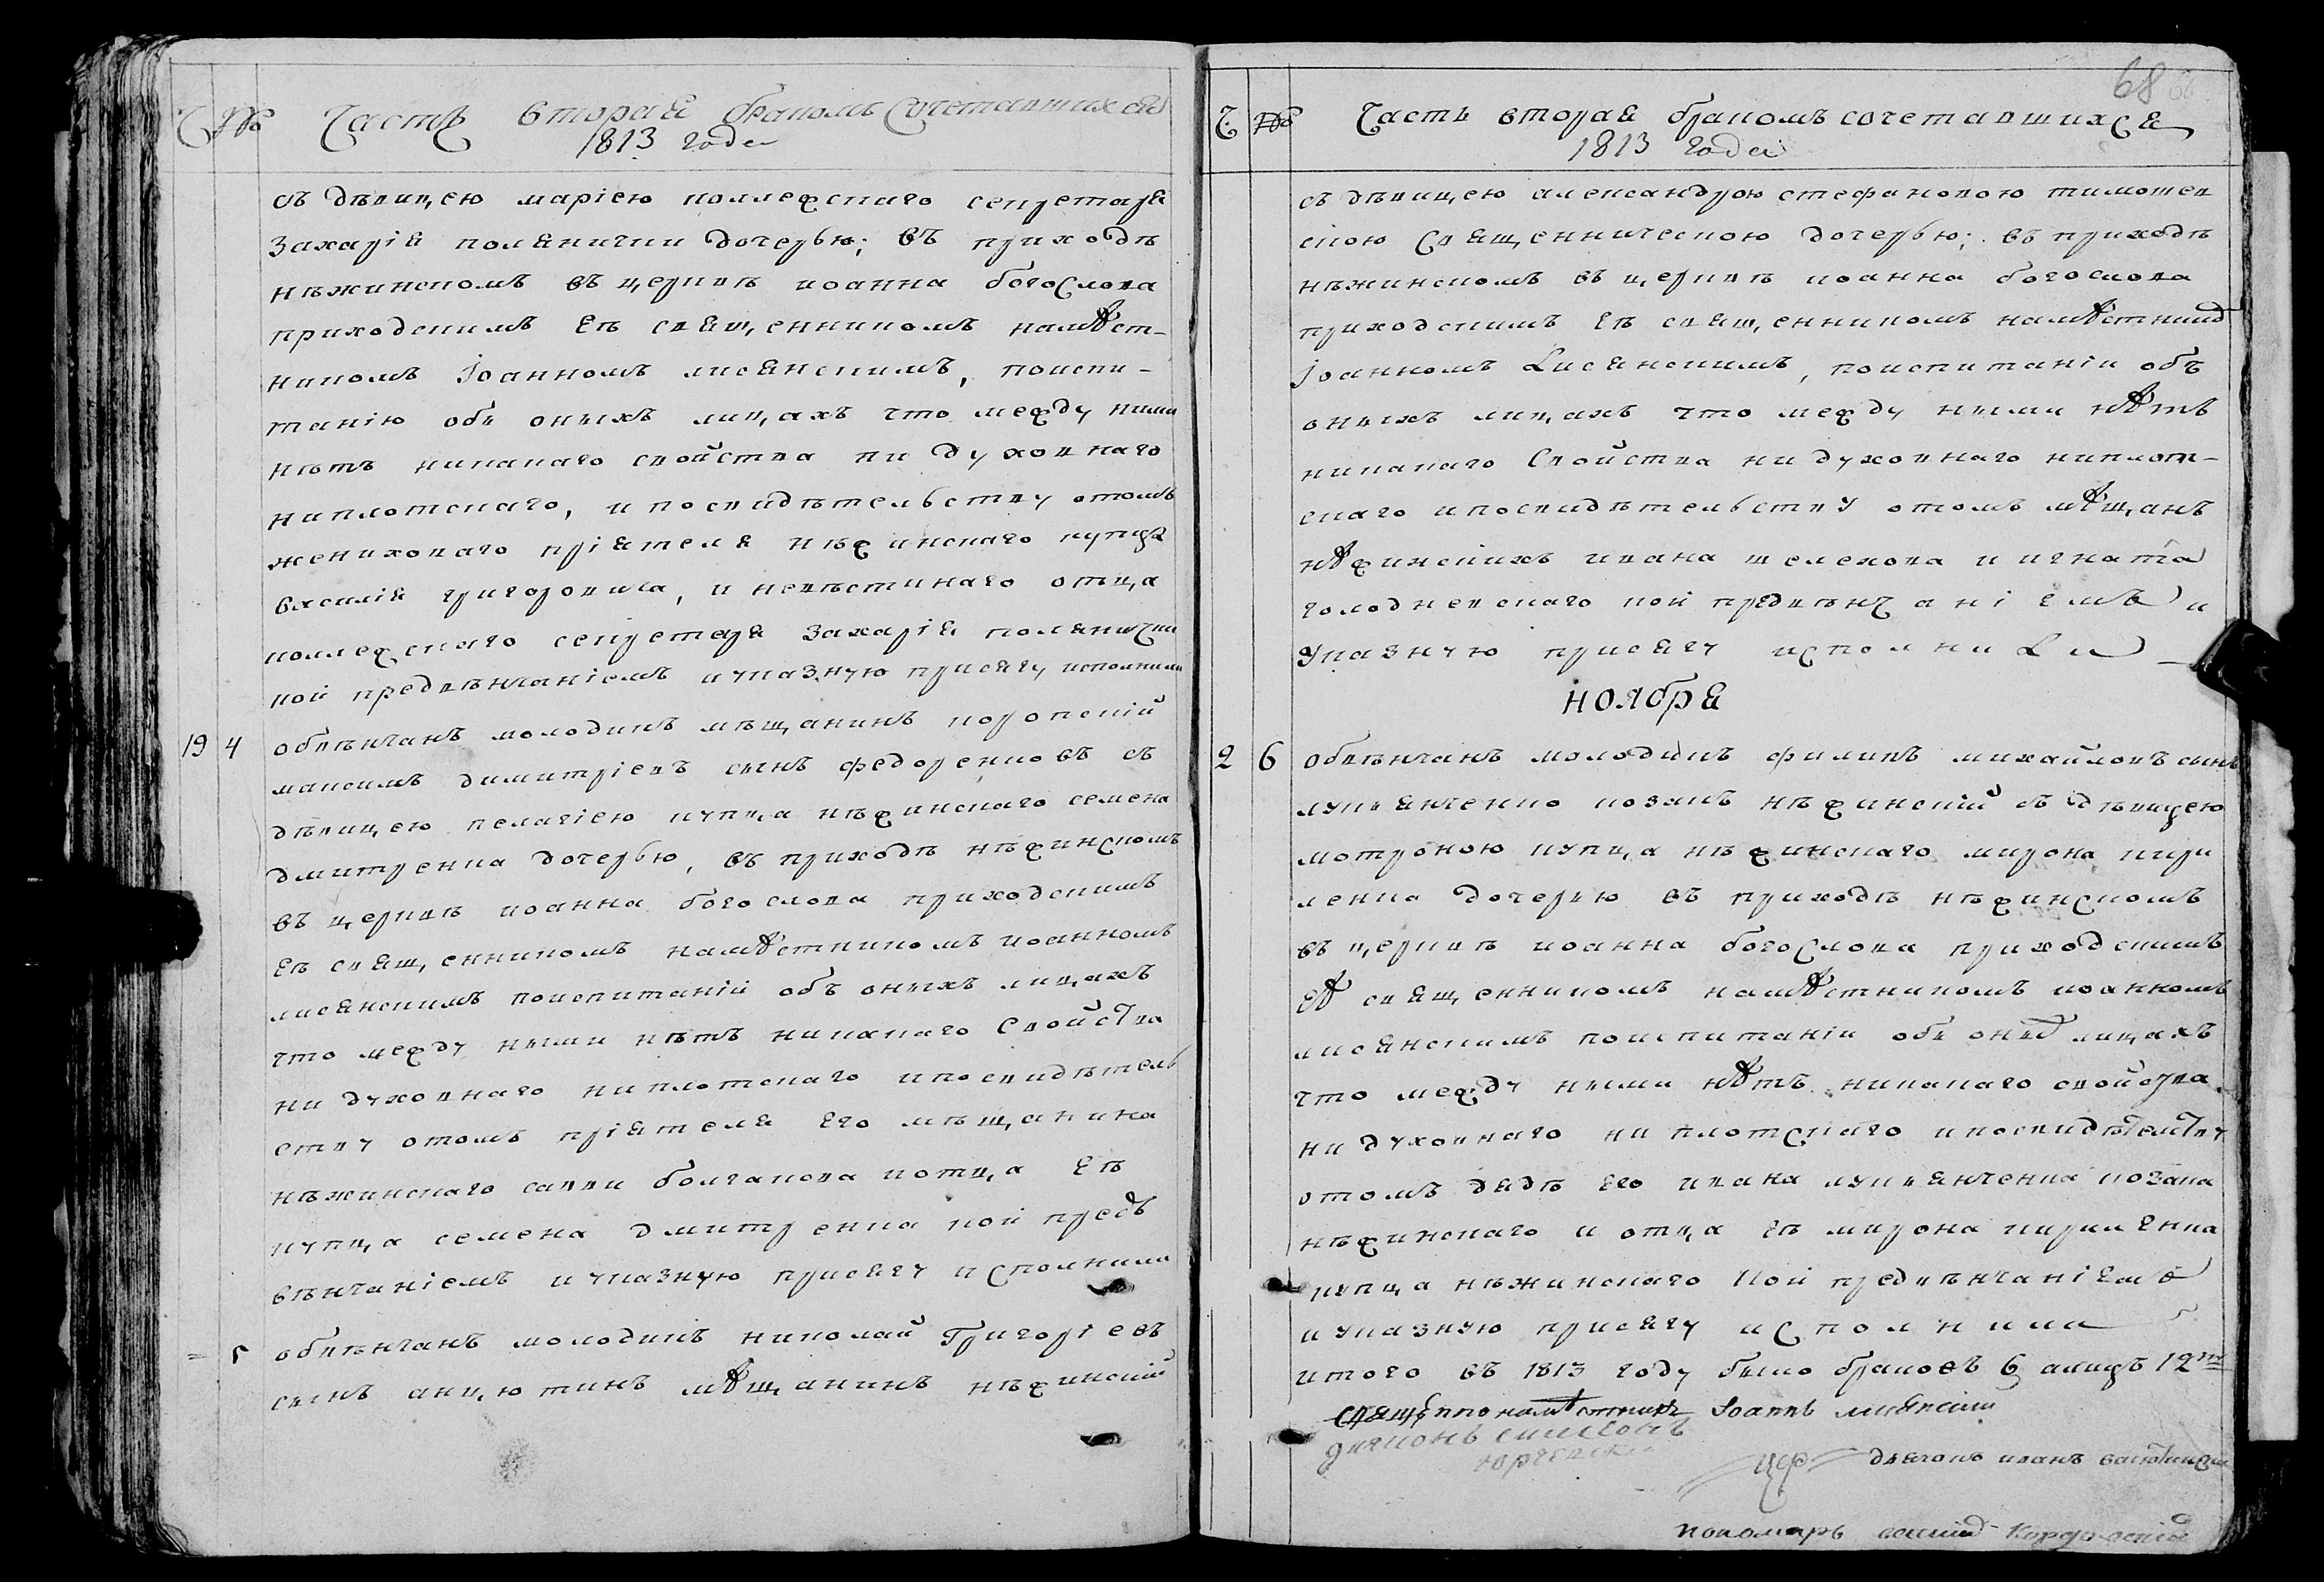 Ч №
Часть вторая бракомъ сочетавшихся
1813 года
съ дѣвицею маріею коллежскаго секретаря
Захарія полянички дочерью; въ приходѣ
нѣжинскомъ въ церквѣ иоанна богослова
приходскимъ еѣ священникомъ намѣст-
никомъ Іоанномъ лисянскимъ, поиспи-
танію объ оныхъ лицахъ что между ними
нѣтъ никакаго свойства ни духовнаго
ниплотскаго, и посвидѣтельству отомъ
жениховаго пріятеля нѣжинскаго купца
василія григоровича, и невѣстинаго отца
коллежскаго секретаря Захарія полянички
кои предвѣнчаніемъ иуказную присягу исполнили
19 4 обвѣнчанъ молодикъ мѣщанинъ коропскій
максимъ димитріевъ сынъ федоренковъ съ
дѣвицею пелагіею купца нѣжинскаго семена
дмитренка дочерью, въ приходѣ нѣжинскомъ
въ церквѣ иоанна богослова приходскимъ
еѣ священникомъ намѣстникомъ иоанномъ
лисянскимъ поиспитаній объ оныхъ лицахъ
что между ними нѣтъ никакаго свойства
ни духовнаго ниплотскаго ипосвидѣтель
ству отомъ пріятеля его мѣщанина
нѣжинскаго саввы болгакова иотца еѣ
купца семена дмитренка кои предъ
вѣнчаніемъ иуказную присягу исполнили
= 5 обвѣнчанъ молодикъ николай Григоріевъ
сынъ анцютинъ мѣщанинъ нѣжинскій
68
Ч. №
Часть вторая бракомъ сочетавшихся
1813 года
съ дѣвицею александрою стефановою тимошев
скою священническою дочерью; въ приходѣ
нѣжинскомъ въ церквѣ иоанна богослова
приходскимъ еѣ священникомъ намѣстником
Іоанномъ Лисянскимъ, поиспитаніи объ
оныхъ лицахъ что между ними нѣтъ
никакаго свойства нидуховнаго ниплот-
скаго ипосвидѣтельству отомъ мѣщанъ
нѣжинскихъ ивана шелехова и игната
голодневскаго кои предвѣнчаніемъ и
Указную присягу исполнили
ноября
2 6 обвѣнчанъ молодикъ филипъ михайловъ сынъ
лукьянченко козакъ нѣжинскій съ дѣвицею
мотроною купца нѣжинскаго мирона кири
ленка дочерью въ приходѣ нѣжинскомъ
въ церквѣ иоанна богослова приходскимъ
еѣ священникомъ намѣстникомъ иоанномъ
лисянскимъ поиспитаніи объ оных лицахъ
что между ними нѣтъ никакаго свойства
ни духовнаго ни плотскаго ипосвидѣтельству
отомъ дядѣ его ивана лукьянченка козака
нѣжинскаго и отца еѣ мирона кириленка
купца нѣжинскаго кои предвѣнчаніемъ
иуказную присягу исполнили
итого въ 1813 году было браковъ 6 алицъ 12
намѣстникъ Іоаннъ лисянскій
диякон иванъ
пономарь